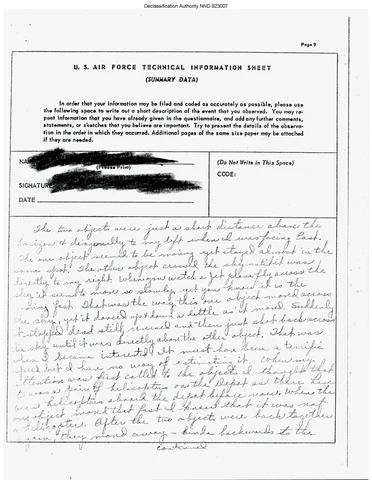 Declassification Authority NND 923007
Page 9
U. S. AIR FORCE TECHNICAL INFORMATION SHEET
(SUMMARY DATA)
In order that your information may be filed and coded as accurately as possible, please use
the following space to write out a short description of the event that you observed. You may re-
peat information that you have already given in the questionnaire, and add any further comments,
statements, or sketches that you believe are important. Try to present the details of the observa-
tion in the order in which they occurred. Additional pages of the same size paper may be attached
if they are needed.
NA
(Please Print)
(Do Not Write in This Space)
CODE:
SIGNATURE
DATE
The two objects were just a short distance above the
horizon & diagonally to my left when I was facing East.
The one object seemed to be moving yet stayed almost in the
same spot. The other object crossed the sky until it was
directly to my right. When you watch a jet plane fly across the
sky it seems to move so slowly, yet you know it is
moving fast. That was the way this one object moved across
the sky, yet it moved up & down a little as it moved. Suddenly
it stopped dead still reversed and then just shot back across
the sky until it was directly above the other object. That was
when I became interested. It must have been a terrific
speed but I have no way of estimating it. When my
attention was first called to the objects I thought that
it was a pair of helicopters on the depot as there have
been helicopters around the depot before now. When the
one object moved that fast I knew that it was not
a helicopter. After the two objects were back together
again, they moved away - kinda backwards to the
continued